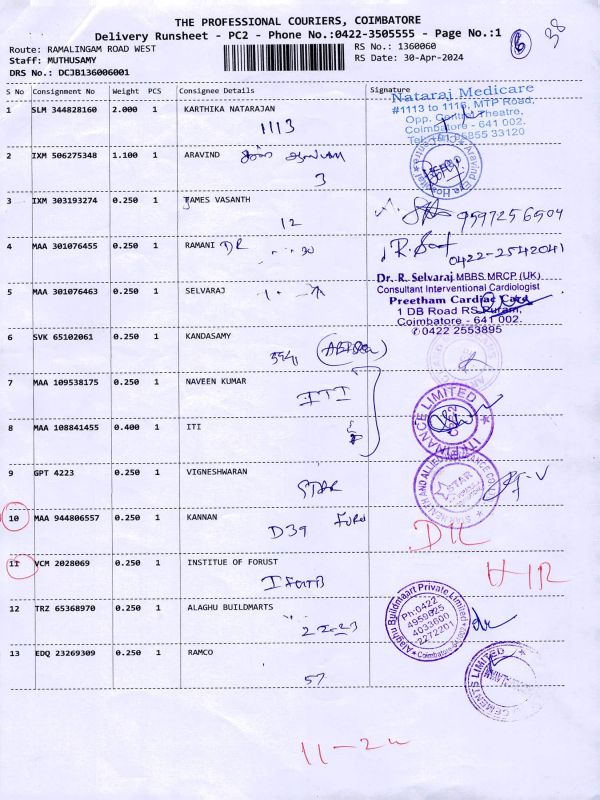 THE PROFESSIONAL COURIERS, COIMBATORE
Delivery Runsheet - PC2 - Phone No.:0422-3505555 - Page No.:1
6
38
Route: RAMALINGAM ROAD WEST
RS No.: 1360060
Staff: MUTHUSAMY
RS Date: 30-Apr-2024
DRS No.: DCJB136006001
S No Consignment No Weight PCS Consignee Details Signature
Nataraj Medicare
#1113 to 1116, MTP Road,
Opp. Central Theatre,
Coimbatore - 641 002.
1 SLM 344828160 2.000 1 KARTHIKA NATARAJAN
1113
2 IXM 506275348 1.100 1 ARAVIND
3
3 IXM 303193274 0.250 1 JAMES VASANTH
12
9597256904
4 MAA 301076455 0.250 1 RAMANI DR
0422-2542041
Dr. R. Selvaraj MBBS.MRCP.(UK)
Consultant Interventional Cardiologist
Preetham Cardiac Care
1 DB Road RS Puram,
Coimbatore - 641 002.
✆0422 2553895
5 MAA 301076463 0.250 1 SELVARAJ
6 SVK 65102061 0.250 1 KANDASAMY
7 MAA 109538175 0.250 1 NAVEEN KUMAR
ITI
8 MAA 108841455 0.400 1 ITI
9 GPT 4223 0.250 1 VIGNESHWARAN
STAR
10 MAA 944806557 0.250 1 KANNAN
D39
DL
11 VCM 2028069 0.250 1 INSTITUE OF FORUST
12 TRZ 65368970 0.250 1 ALAGHU BUILDMARTS
Alaghu Buildmaart Private Limited
Ph:0422
4959625
4033600
2272201
Coimbatore
13 EDQ 23269309 0.250 1 RAMCO
57